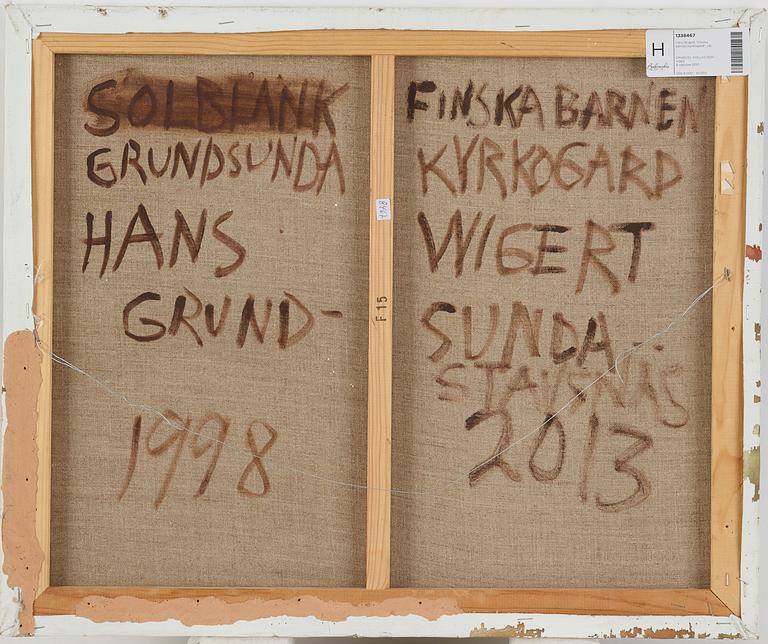 SOLBLANK
GRUNDSUNDA
HANS
GRUND-
1998
FINSKA BARNEN
KYRKOGARD
WIGERT
SUNDA
STAVSNÄS
2013
F 15
H
1338467